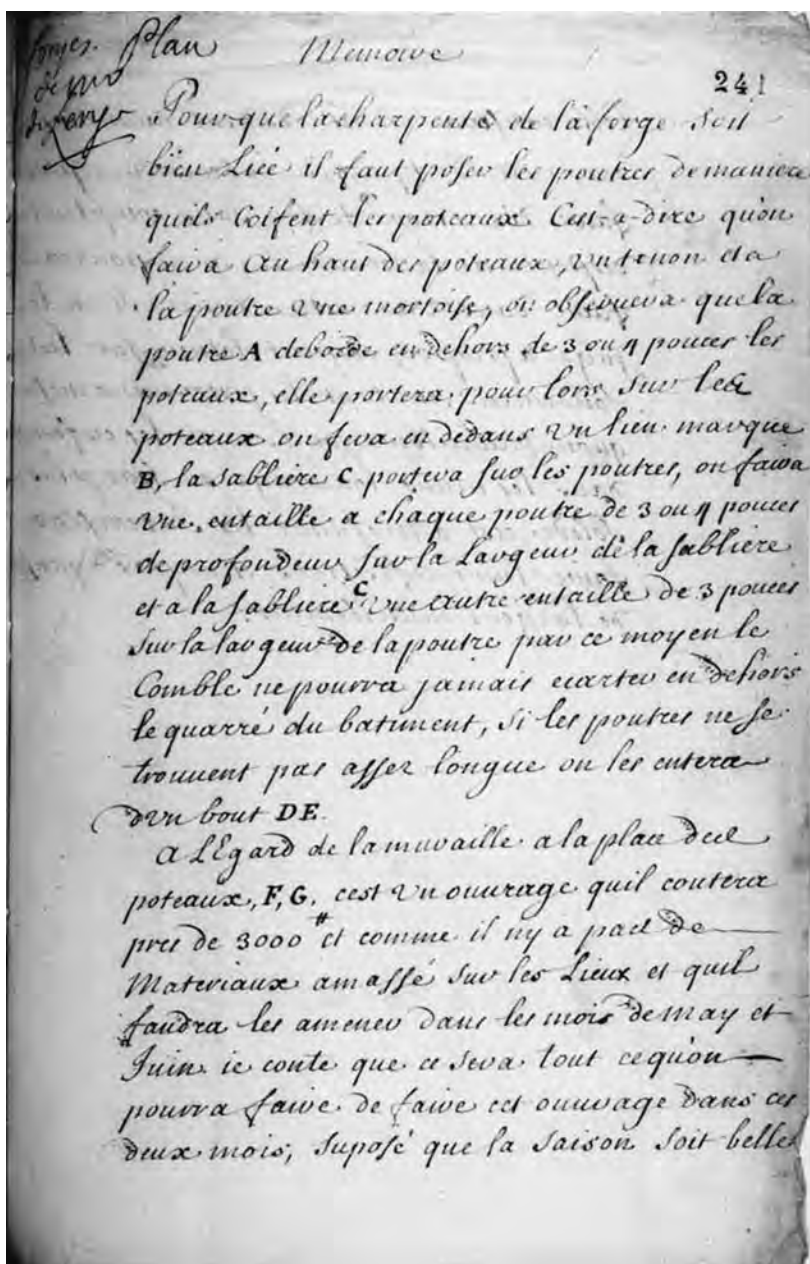 forges. Plan Memoire
241
Pour que la charpente de la forge soit
bien Liée il faut poser les poutres de maniere
quils Coifent les poteaux Cest-a-dire qu'on
faira au haut des poteaux, un tenon et a
la poutre une mortoise, on obseruera que la
poutre A deborde en dehors de 3 ou 4 pouces les
poteaux, elle portera pour lors sur les
poteaux on fera en dedans un lien marque
B, la sabliere C portera sur les poutres, on faira
une entaille a chaque poutre de 3 ou 4 pouces
de profondeur sur la Largeur de la sabliere
et a la sabliere C une autre entaille de 3 pouces
sur la largeur de la poutre par ce moyen le
Comble ne pourra jamais ecarter en dehors
le quarré du batiment, si les poutres ne se
trouuent pas assez longue on les entera
d'un bout DE.
a LEgard de la muraille a la place des
poteaux, F, G. cest un ouurage quil coutera
pres de 3000 # et comme il ny a pas de
Materiaux amassé sur les Lieux et quil
faudra les amener dans les mois de may et
Juin ie conte que ce sera tout ce qu'on
pourra faire de faire cet ouurage dans ces
deux mois, suposé que la saison soit belle